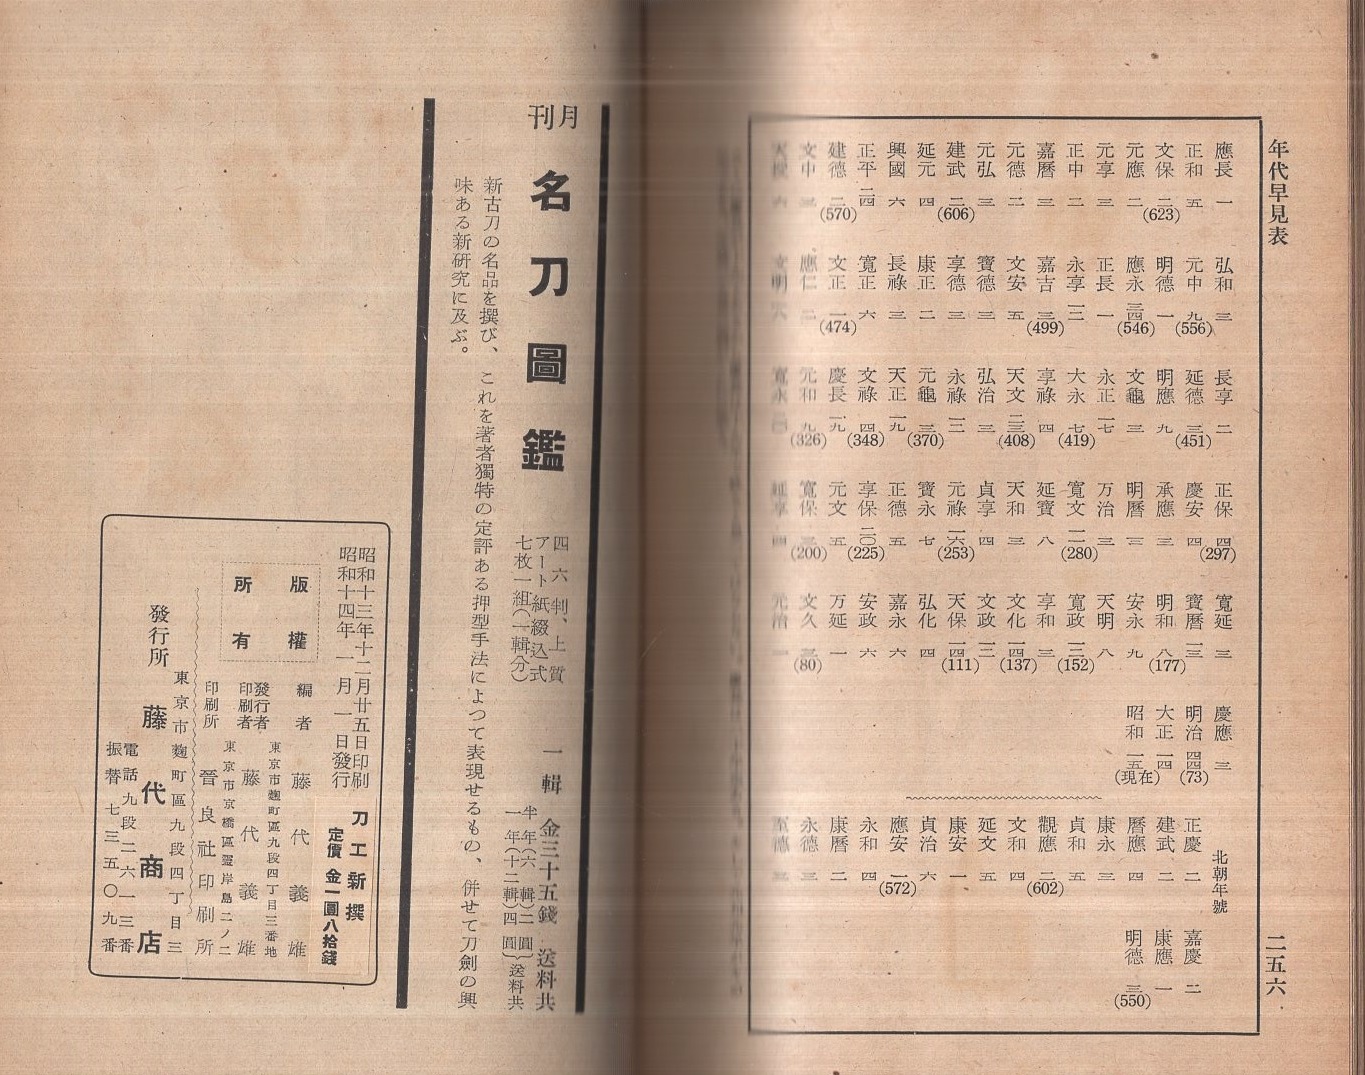 年代早見表
二五六
應長 一
正和 五
文保 二(623)
元應 二
元亨 三
正中 二
嘉曆 三
元德 二
元弘 三
建武 二(606)
延元 四
興國 六
正平 二四
建德 二(570)
文中 三
弘和 三
元中 九(556)
明德 一
應永 三四(546)
正長 一
永享 一二
嘉吉 三(499)
文安 五
寶德 三
享德 三
康正 二
長祿 三
寬正 六
文正 一(474)
應仁 二
文明
長享 二
延德 三(451)
明應 九
文龜 三
永正 一七
大永 七(419)
享祿 四
天文 二三(408)
弘治 三
永祿 一二
元龜 三(370)
天正 一九
文祿 四(348)
慶長 一九
元和 九(326)
寬永
正保 四(297)
慶安 四
承應 三
明曆 三
万治 三
寬文 一二(280)
延寶 八
天和 三
貞享 四
元祿 一六(253)
寶永 七
正德 五
享保 二〇(225)
元文 五
寬保 三(200)
延享 四
寬延 三
寶曆 一三
明和 八(177)
安永 九
天明 八
寬政 一二(152)
享和 三
文化 一四(137)
文政 一二
天保 一四(111)
弘化 四
嘉永 六
安政 六
万延 一
文久 三(80)
元治 一
慶應 三
明治 四四(73)
大正 一四
昭和 一五(現在)
北朝年號
正慶 二
建武 二
曆應 四
康永 三
貞和 五
觀應 二(602)
文和 四
延文 五
康安 一
貞治 六
應安 一(572)
永和 四
康曆 二
永德 三
至德 三
嘉慶 二
康應 一
明德 三(550)
月刊
名刀圖鑑
四六判、上質
アート紙綴込式
七枚一組(一輯分)
一輯 金三十五錢 送料共
半年(六輯)二圓
一年(十二輯)四圓 送料共
新古刀の名品を撰び、これを著者獨特の定評ある押型手法によつて表現せるもの、併せて刀劍の興
味ある新研究に及ぶ。
昭和十三年十二月廿五日印刷
昭和十四年一月一日發行
刀工新撰
定價 金一圓八拾錢
版權
所有
編者 藤代義雄
東京市麴町區九段四丁目三番地
發行者
印刷者 藤代義雄
東京市京橋區靈岸島二ノ二
印刷所 晉良社印刷所
東京市麴町區九段四丁目三
發行所 藤代商店
電話九段二六一三番
振替七三五〇九番